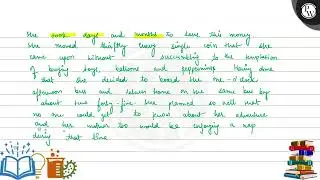 She took days and months to save this money
She saved thriftly every single coin that she
came upon without succumbing to the temptation
of buying toys, balloons and peppermints. Having done
that she decided to board the one-o'clock
afternoon bus and return home on the same bus by
about two forty-five. She planned so well that
no one could get to know about her adventure
and her mother too would be enjoying a nap
during that time.